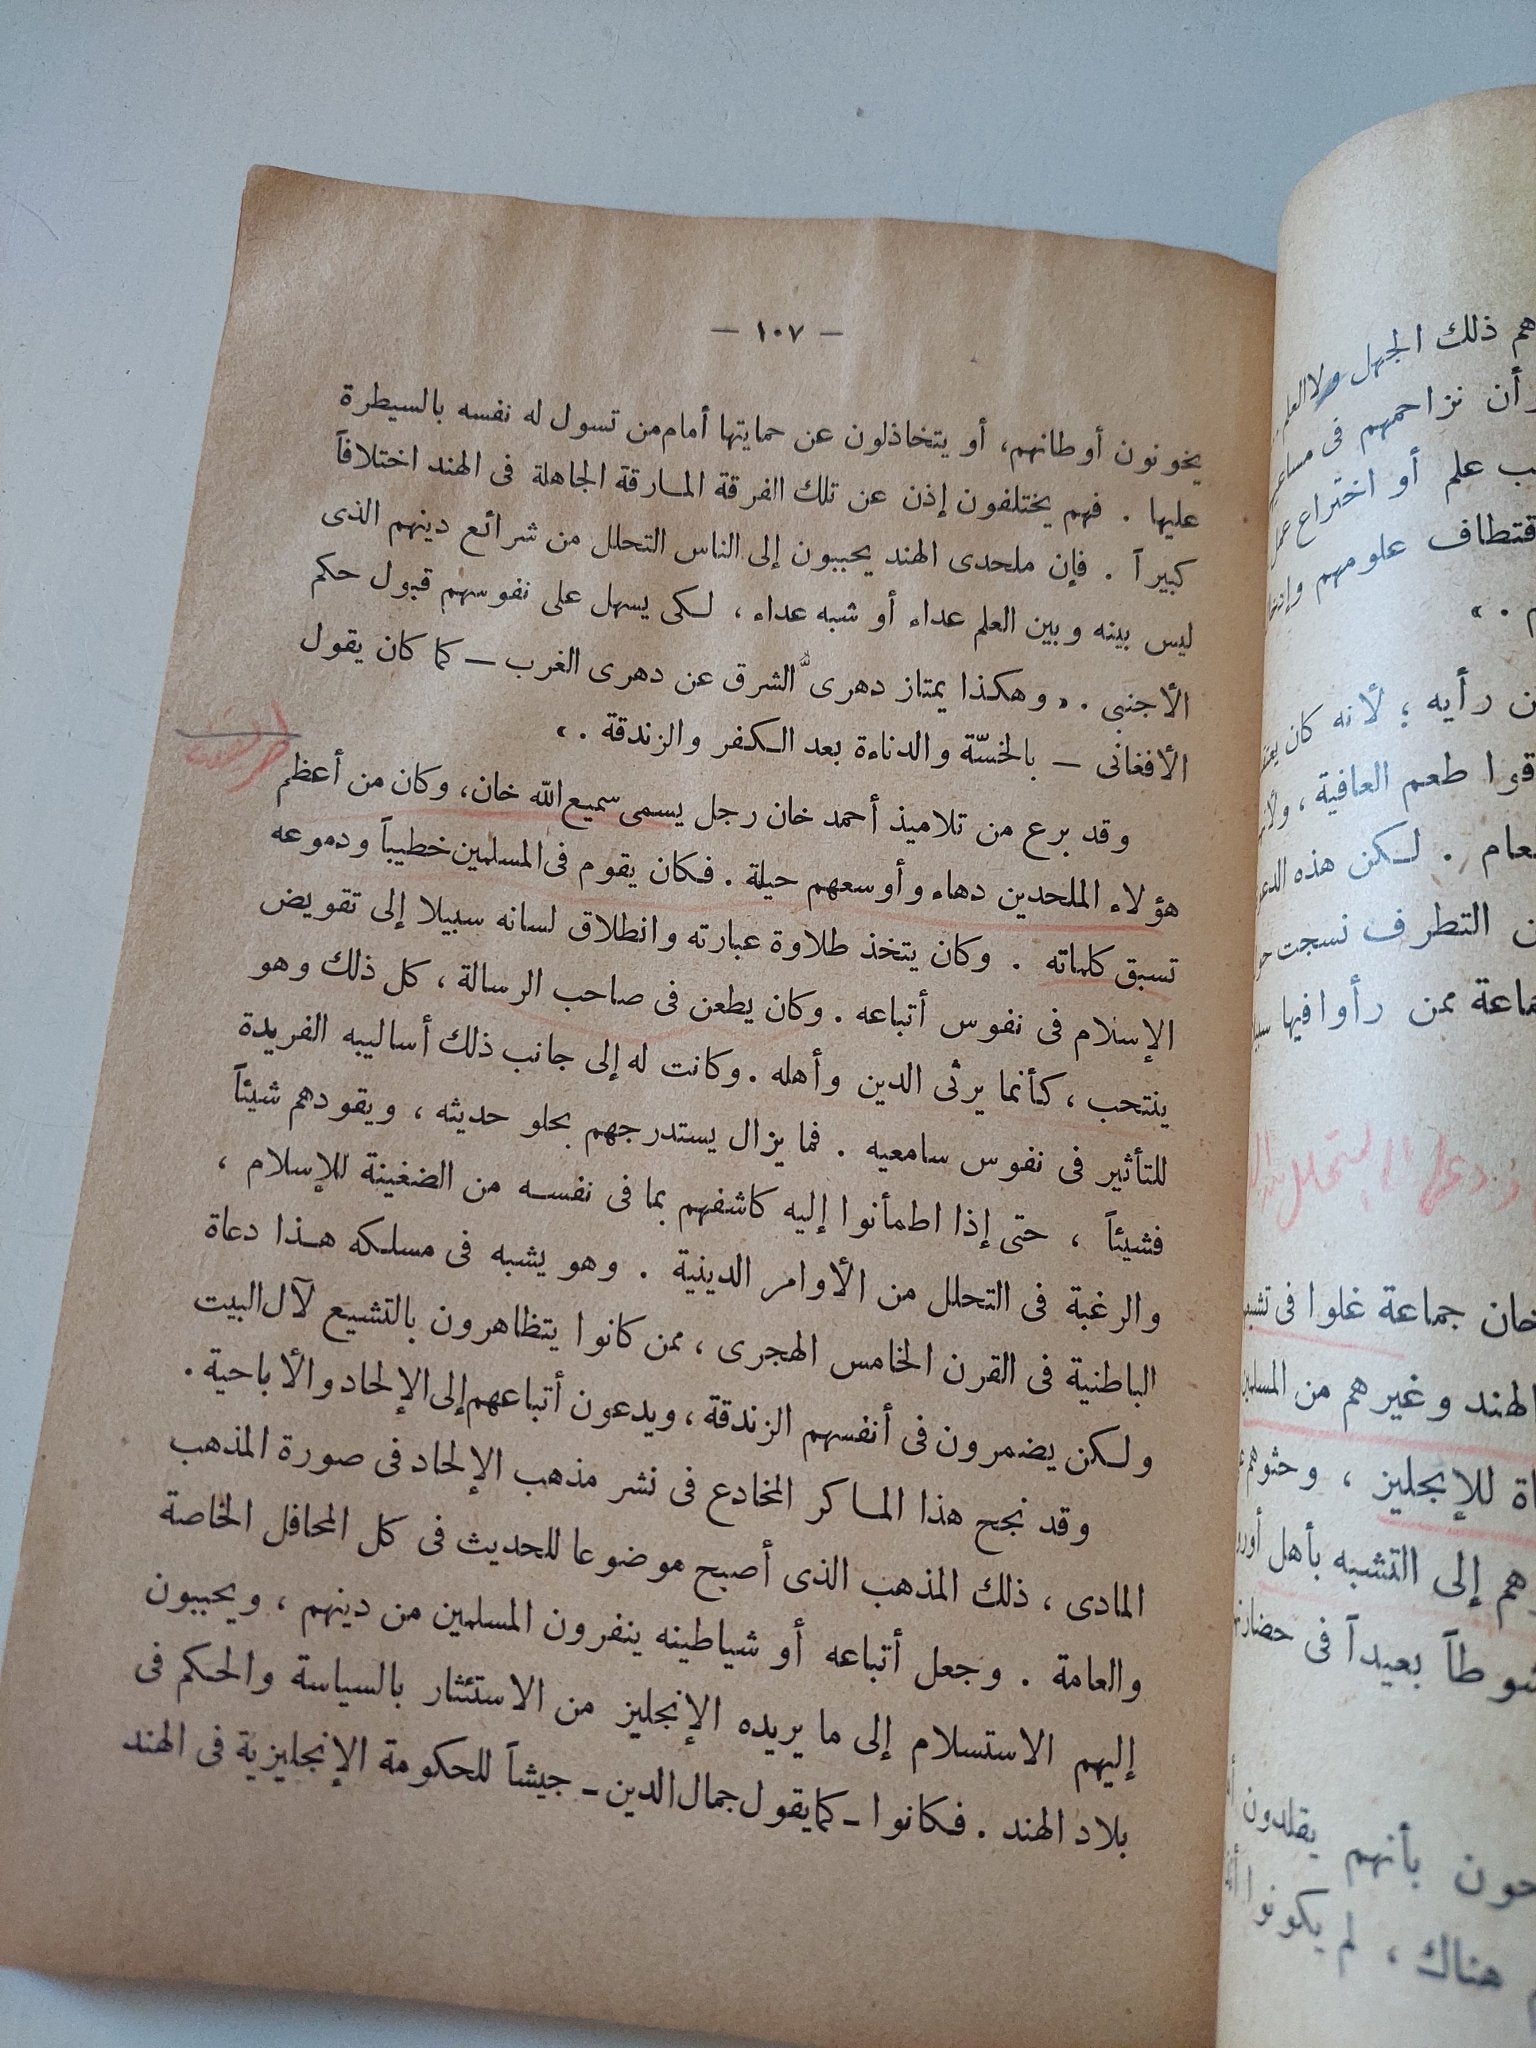 — ١٠٧ —
يخونون أوطانهم، أو يتخاذلون عن حمايتها أمام من تسول له نفسه بالسيطرة
عليها . فهم يختلفون إذن عن تلك الفرقة المارقة الجاهلة فى الهند اختلافاً
كبيراً . فإن ملحدى الهند يحببون إلى الناس التحلل من شرائع دينهم الذى
ليس بينه وبين العلم عداء أو شبه عداء ، لكى يسهل على نفوسهم قبول حكم
الأجنبى . « وهكذا يمتاز دهرى الشرق عن دهرى الغرب — كما كان يقول
الأفغانى — بالخسّة والدناءة بعد الكفر والزندقة . »
وقد برع من تلاميذ أحمد خان رجل يسمى سميع الله خان، وكان من أعظم
هؤلاء الملحدين دهاء وأوسعهم حيلة . فكان يقوم فى المسلمين خطيباً ودموعه
تسبق كلماته . وكان يتخذ طلاوة عبارته وانطلاق لسانه سبيلا إلى تقويض
الإسلام فى نفوس أتباعه . وكان يطعن فى صاحب الرسالة ، كل ذلك وهو
ينتحب ، كأنما يرثى الدين وأهله . وكانت له إلى جانب ذلك أساليبه الفريدة
للتأثير فى نفوس سامعيه . فما يزال يستدرجهم بحلو حديثه ، ويقودهم شيئاً
فشيئاً ، حتى إذا اطمأنوا إليه كاشفهم بما فى نفسه من الضغينة للإسلام ،
والرغبة فى التحلل من الأوامر الدينية . وهو يشبه فى مسلكه هذا دعاة
الباطنية فى القرن الخامس الهجرى ، ممن كانوا يتظاهرون بالتشيع لآل البيت
ولكن يضمرون فى أنفسهم الزندقة ، ويدعون أتباعهم إلى الإلحاد والأباحية .
وقد نجح هذا الماكر المخادع فى نشر مذهب الإلحاد فى صورة المذهب
المادى ، ذلك المذهب الذى أصبح موضوعا للحديث فى كل المحافل الخاصة
والعامة . وجعل أتباعه أو شياطينه ينفرون المسلمين من دينهم ، ويحببون
إليهم الاستسلام إلى ما يريده الإنجليز من الاستئثار بالسياسة والحكم فى
بلاد الهند . فكانوا ـ كما يقول جمال الدين ـ جيشاً للحكومة الإنجليزية فى الهند
هم ذلك الجهل ولا العلم
أن نزاحمهم فى
علم أو اختراع عمل
علومهم
رأيه ؛ لأنه كان
طعم العافية ،
. لكن هذه
التطرف نسجت
ممن رأوا فيها
خان جماعة غلوا فى
الهند وغيرهم من
للإنجليز ،
إلى التشبه بأهل
بعيداً فى
بأنهم يقلدون
هناك ، لم يكونوا